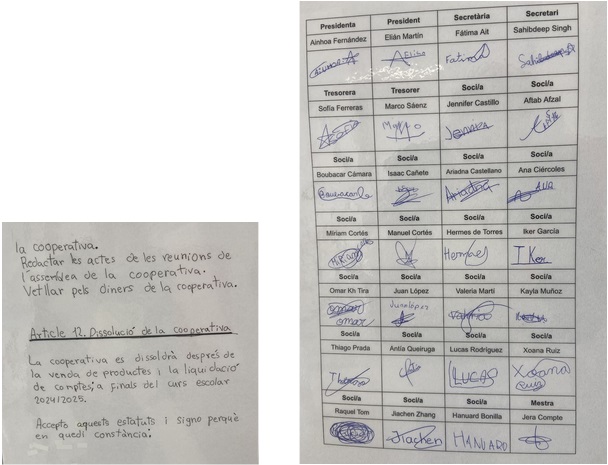 la cooperativa.
Redactar les actes de les reunions de
l'assemblea de la cooperativa.
Vetllar pels diners de la cooperativa.
Article 12. Dissolució de la cooperativa
La cooperativa es dissoldrà després de
la venda de productes i la liquidació
de comptes, a finals del curs escolar
2024/2025.
Accepto aquests estatuts i signo perquè
en quedi constància:
Presidenta President Secretària Secretari
Ainhoa Fernández Elián Martín Fátima Ait Sahibdeep Singh
Tresorera Tresorer Soci/a Soci/a
Sofía Ferreras Marco Sáenz Jennifer Castillo Aftab Afzal
Soci/a Soci/a Soci/a Soci/a
Boubacar Cámara Isaac Cañete Ariadna Castellano Ana Ciércoles
Ariadna
Soci/a Soci/a Soci/a Soci/a
Miriam Cortés Manuel Cortés Hermes de Torres Iker García
Iker
Soci/a Soci/a Soci/a Soci/a
Omar Kh Tira Juan López Valeria Martí Kayla Muñoz
omar
Soci/a Soci/a Soci/a Soci/a
Thiago Prada Antía Queiruga Lucas Rodríguez Xoana Ruiz
LUCAS Xoana
Ruiz
Soci/a Soci/a Soci/a Mestra
Raquel Tom Jiachen Zhang Hanuard Bonilla Jera Compte
Jiachen HANUARD